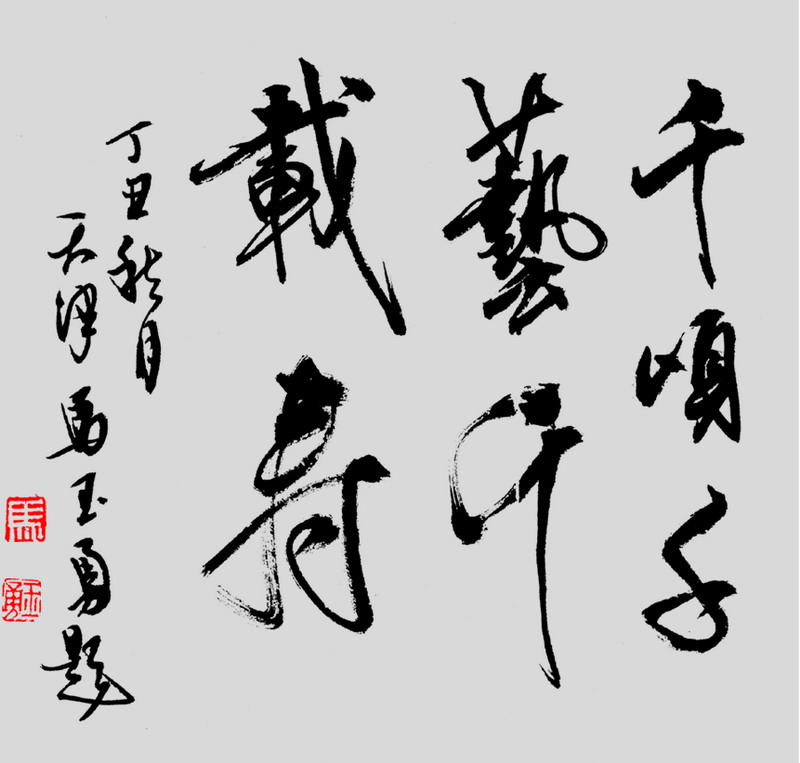 千頃千
藝千
載壽
丁丑秋月
天津馬玉勇題
馬